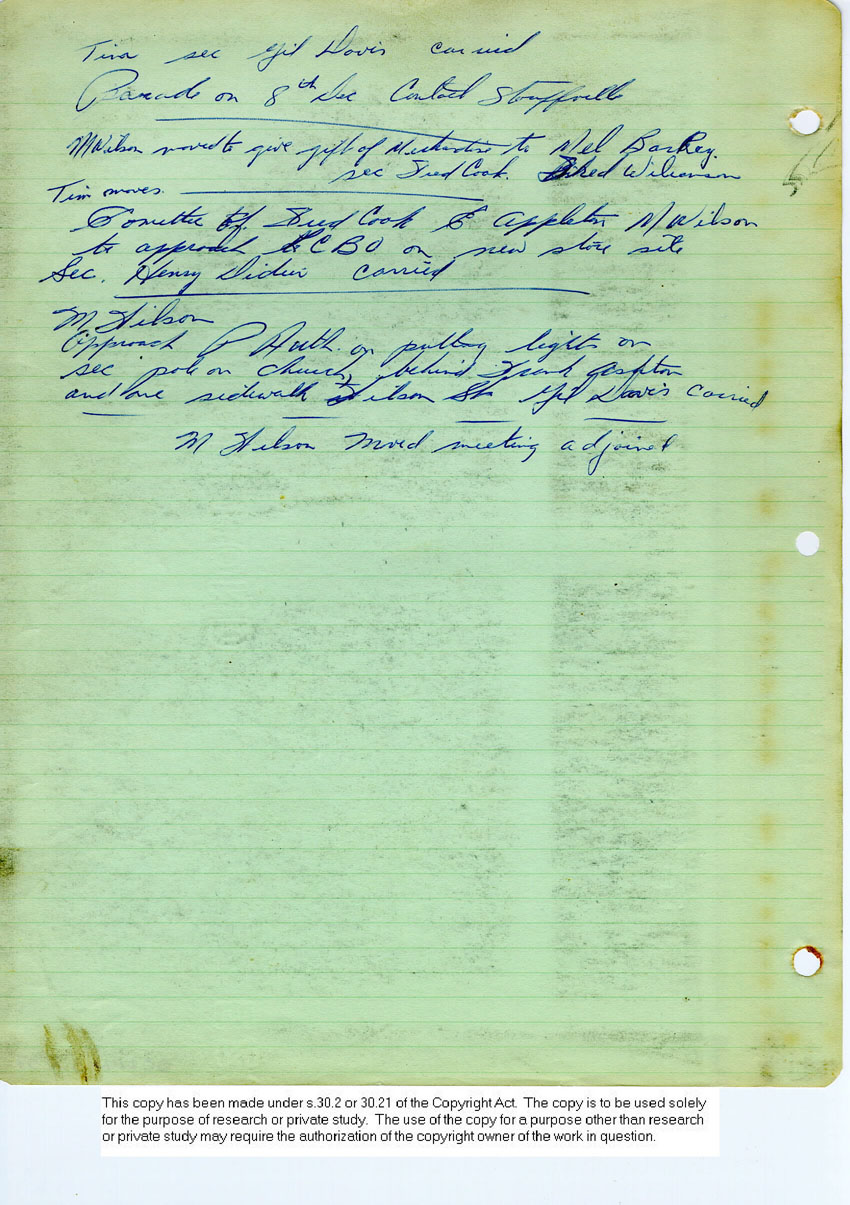 Tim sec Gil Davis carried
Parade on 8th Dec Contact Stouffville
M Wilson moved to give gift of to Mel Barkey.
sec Fred Cook.
Tim moves.
of Fred Cook E Appleton M Wilson
to approach LCBO on new store site
Sec. Henry Didier carried
M Wilson
Approach P Huth on putting lights on
sec pole on church, behind Frank
and one sidewalk Wilson St. Gil Davis carried
M Wilson Moved meeting adjoined
This copy has been made under s.30.2 or 30.21 of the Copyright Act. The copy is to be used solely
for the purpose of research or private study. The use of the copy for a purpose other than research
or private study may require the authorization of the copyright owner of the work in question.